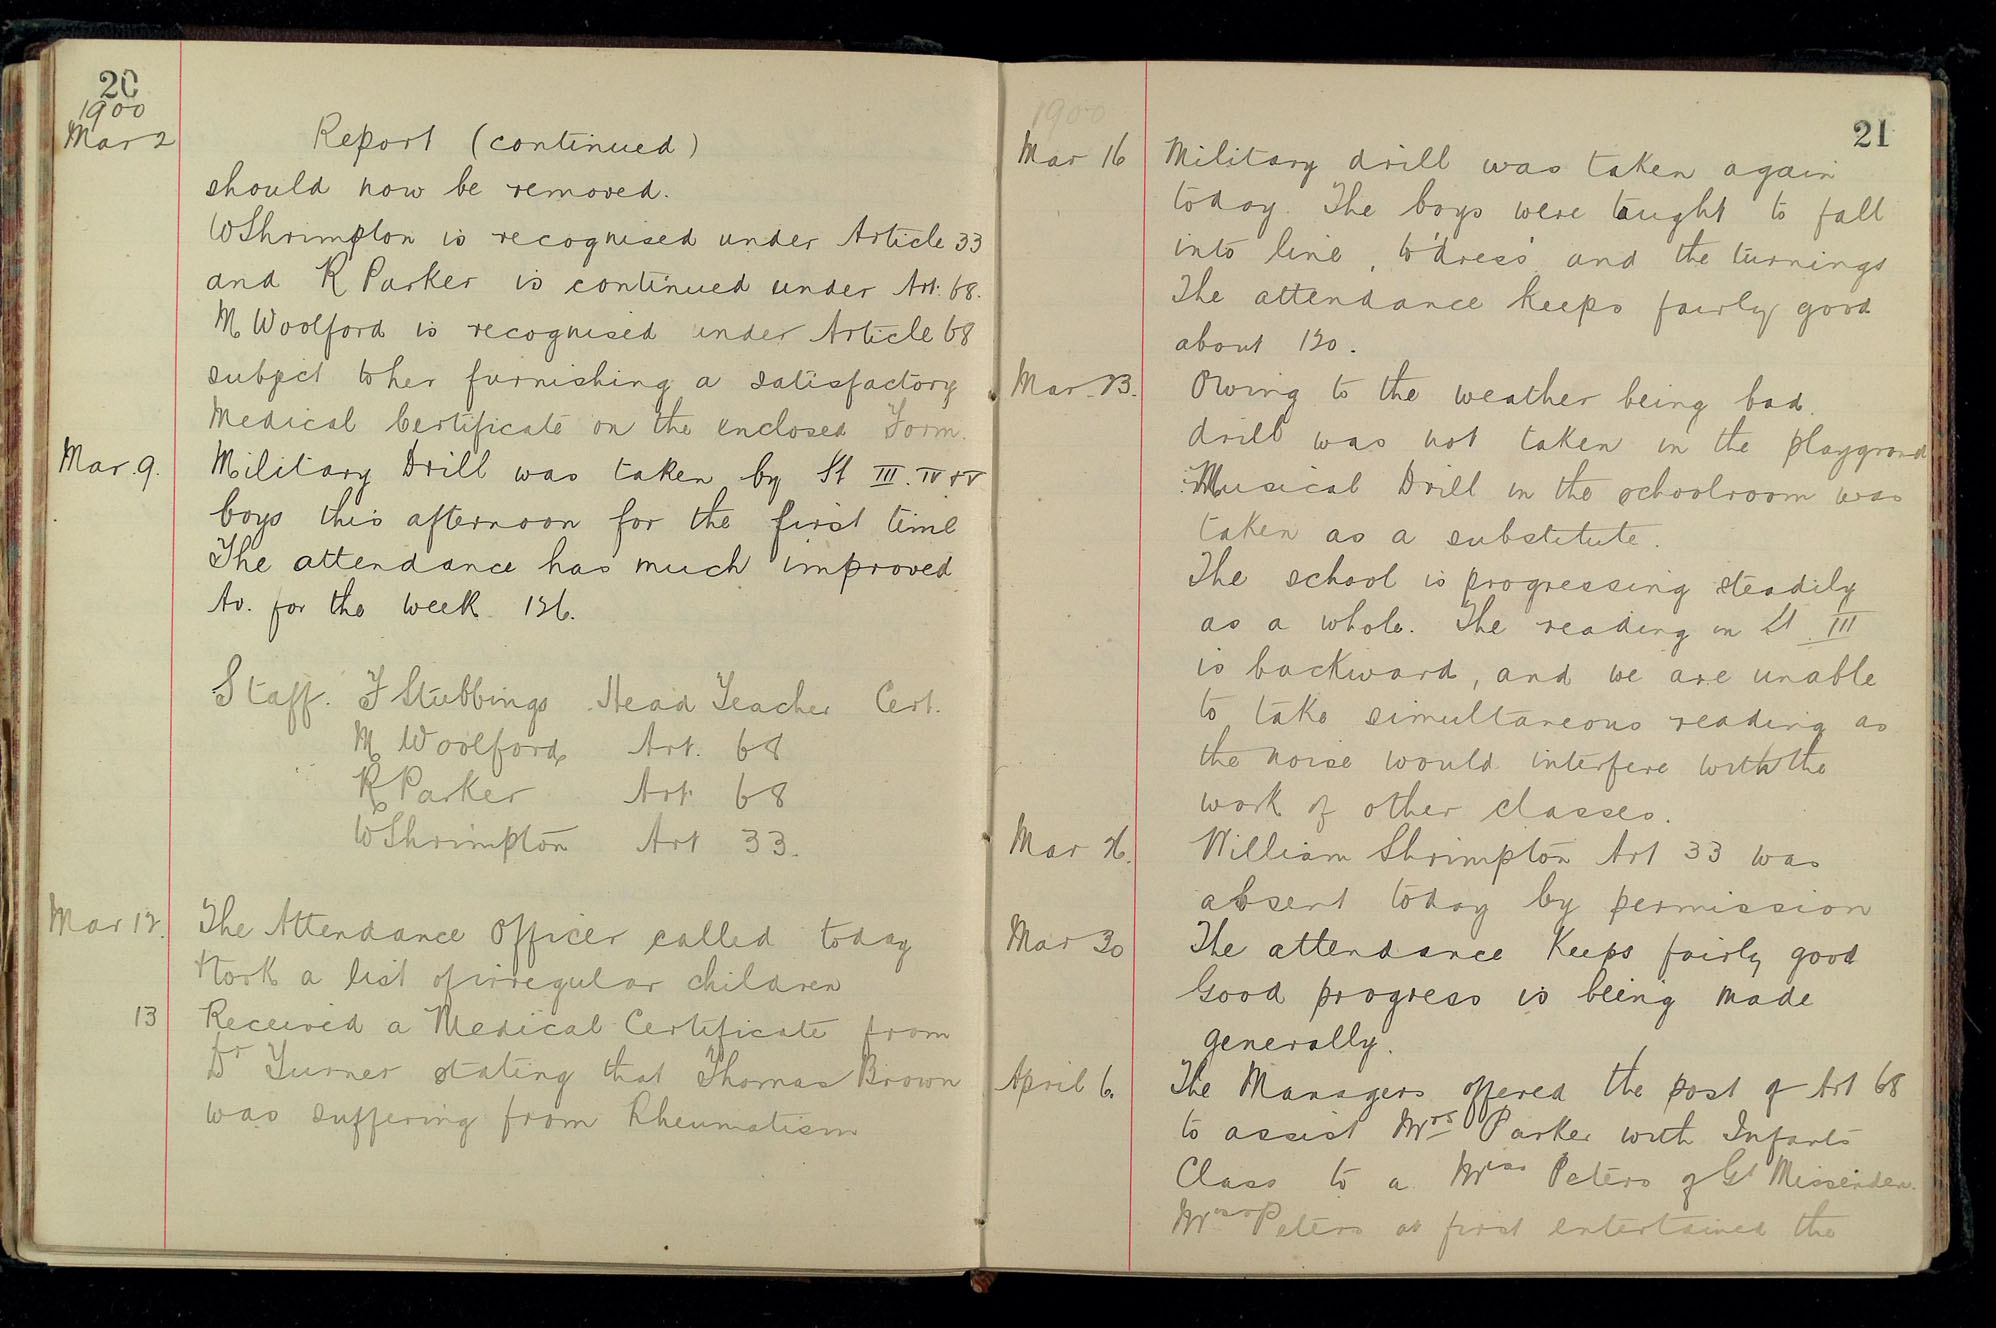 20
1900
Mar 2
Report (continued)
should now be removed.
WShrimpton is recognised under Article 33
and R Parker is continued under Art. 68.
M Woolford is recognised under Article 68
subject to her furnishing a satisfactory
Medical Certificate on the enclosed Form.
Mar. 9. Military Drill was taken by St III. IV + V
boys this afternoon for the first time
The attendance has much improved
Av. for the week 126.
Staff. F Stubbings Head Teacher Cert.
M Woolford Art. 68
R Parker Art 68
WShrimpton Art 33.
Mar 12. The Attendance Officer called today
+took a list of irregular children
13 Received a Medical Certificate from
Dr Turner stating that Thomas Brown
was suffering from Rheumatism
21
1900
Mar 16 Military drill was taken again
today. The boys were taught to fall
into line, to 'dress' and the turnings
The attendance keeps fairly good
about 120.
Mar. 23. Owing to the weather being bad.
drill was not taken in the playground
Musical Drill in the schoolroom was
taken as a substitute.
The school is progressing steadily
as a whole. The reading in St III
is backward, and we are unable
to take simultaneous reading as
the noise would interfere with the
work of other classes.
Mar 26. William Shrimpton Art 33 was
absent today by permission
Mar 30 The attendance keeps fairly good
Good progress is being made
generally.
April 6. The Managers offered the post of Art 68
to assist Mrs Parker with Infants
Class to a Miss Peters of Gt Missenden.
Miss Peters at first entertained the